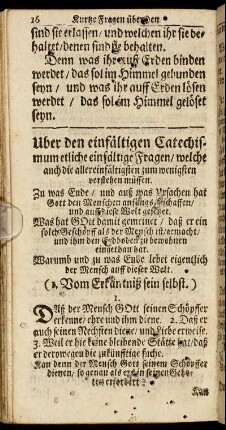 16 Kurtze Fragen über den
sind sie erlassen / und welchen ihr sie be-
haltet / denen sind sie behalten.
Denn was ihr auß Erden binden
werdet / das sol im Himmel gebunden
seyn / und was ihr auff Erden lösen
werdet / das sol im Himmel gelöset
seyn.
Uber den einfältigen Catechis-
mum etliche einfältige Fragen / welche
auch die allereinfältigsten zum wenigsten
verstehen müssen.
Zu was Ende / und auß was Ursachen hat
Gott den Menschen anfangs erschaffen /
und auff diese Welt gesetzet.
Was hat GOtt damit gemeinet / daß er ein
solch Geschöpf als der Mensch ist / gemacht /
und ihm den Erdboden zu bewohnen
eingethan hat.
Warumb und zu was Ende lebet eigentlich
der Mensch auff dieser Welt.
(1. Vom Erkäntniß sein selbst.)
1.
DAß der Mensch GOtt seinen Schöpffer
erkenne / ehre und ihm diene. 2. Daß er
auch seinen Nechsten diene / und Liebe erweise.
3. Weil er hie keine bleibende Stätte hat / daß
er derowegen die zukünfftige suche.
Kan denn der Mensch Gott seinem Schöpffer
dienen, so genau als er von seinen Gebo-
ten erfordert?
Kan